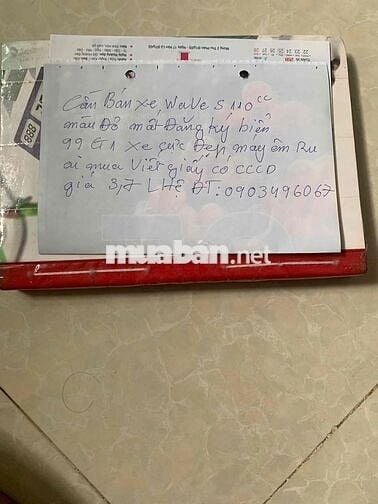 Cần Bán xe, Wave S 110cc
màu Đỏ mất Đăng ký biển
99 G1 xe cực Đẹp, máy êm Ru
ai mua Viết giấy có CCCD
giá 3,7 LHệ ĐT: 0903496067
muabán.net